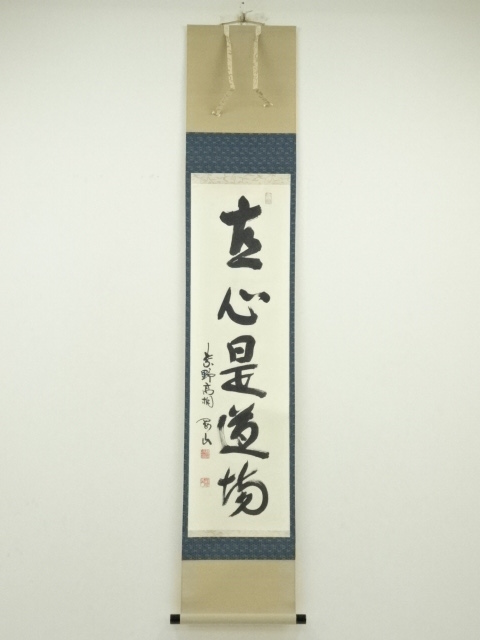 直心是道場
紫野高桐 寛山